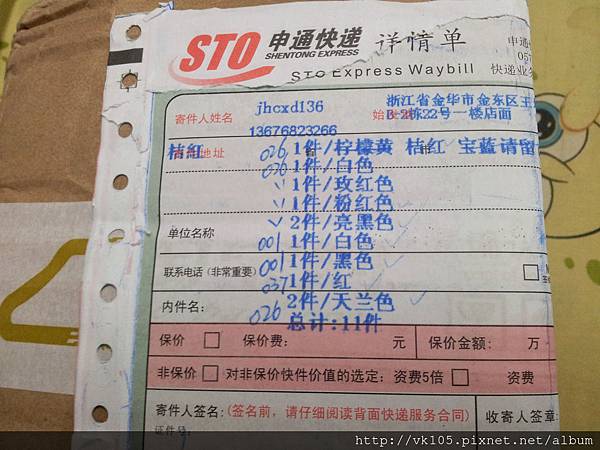 STO 申通快递 详情单
SHENTONG EXPRESS
STO Express Waybill
申通
057
快递业
寄件人姓名 jhcxd136
13676823266
浙江省金华市金东区王
B-2栋22号一楼店面
桔红 地址 026 1件/柠檬黄 桔红 宝蓝请留
026 1件/白色
〃 1件/玫红色
〃 1件/粉红色
单位名称 〃 2件/亮黑色
001 1件/白色
联系电话(非常重要) 001 1件/黑色
037 1件/红
内件名: 026 2件/天兰色
总计:11件
保价 □ 保价费: 元 保价金额: 万
非保价 □ 对非保价快件价值的选定: 资费5倍 □ 资费
寄件人签名: (签名前,请仔细阅读背面快递服务合同) 收寄人签章:
证件号:
http://vk105.pixnet.net/album